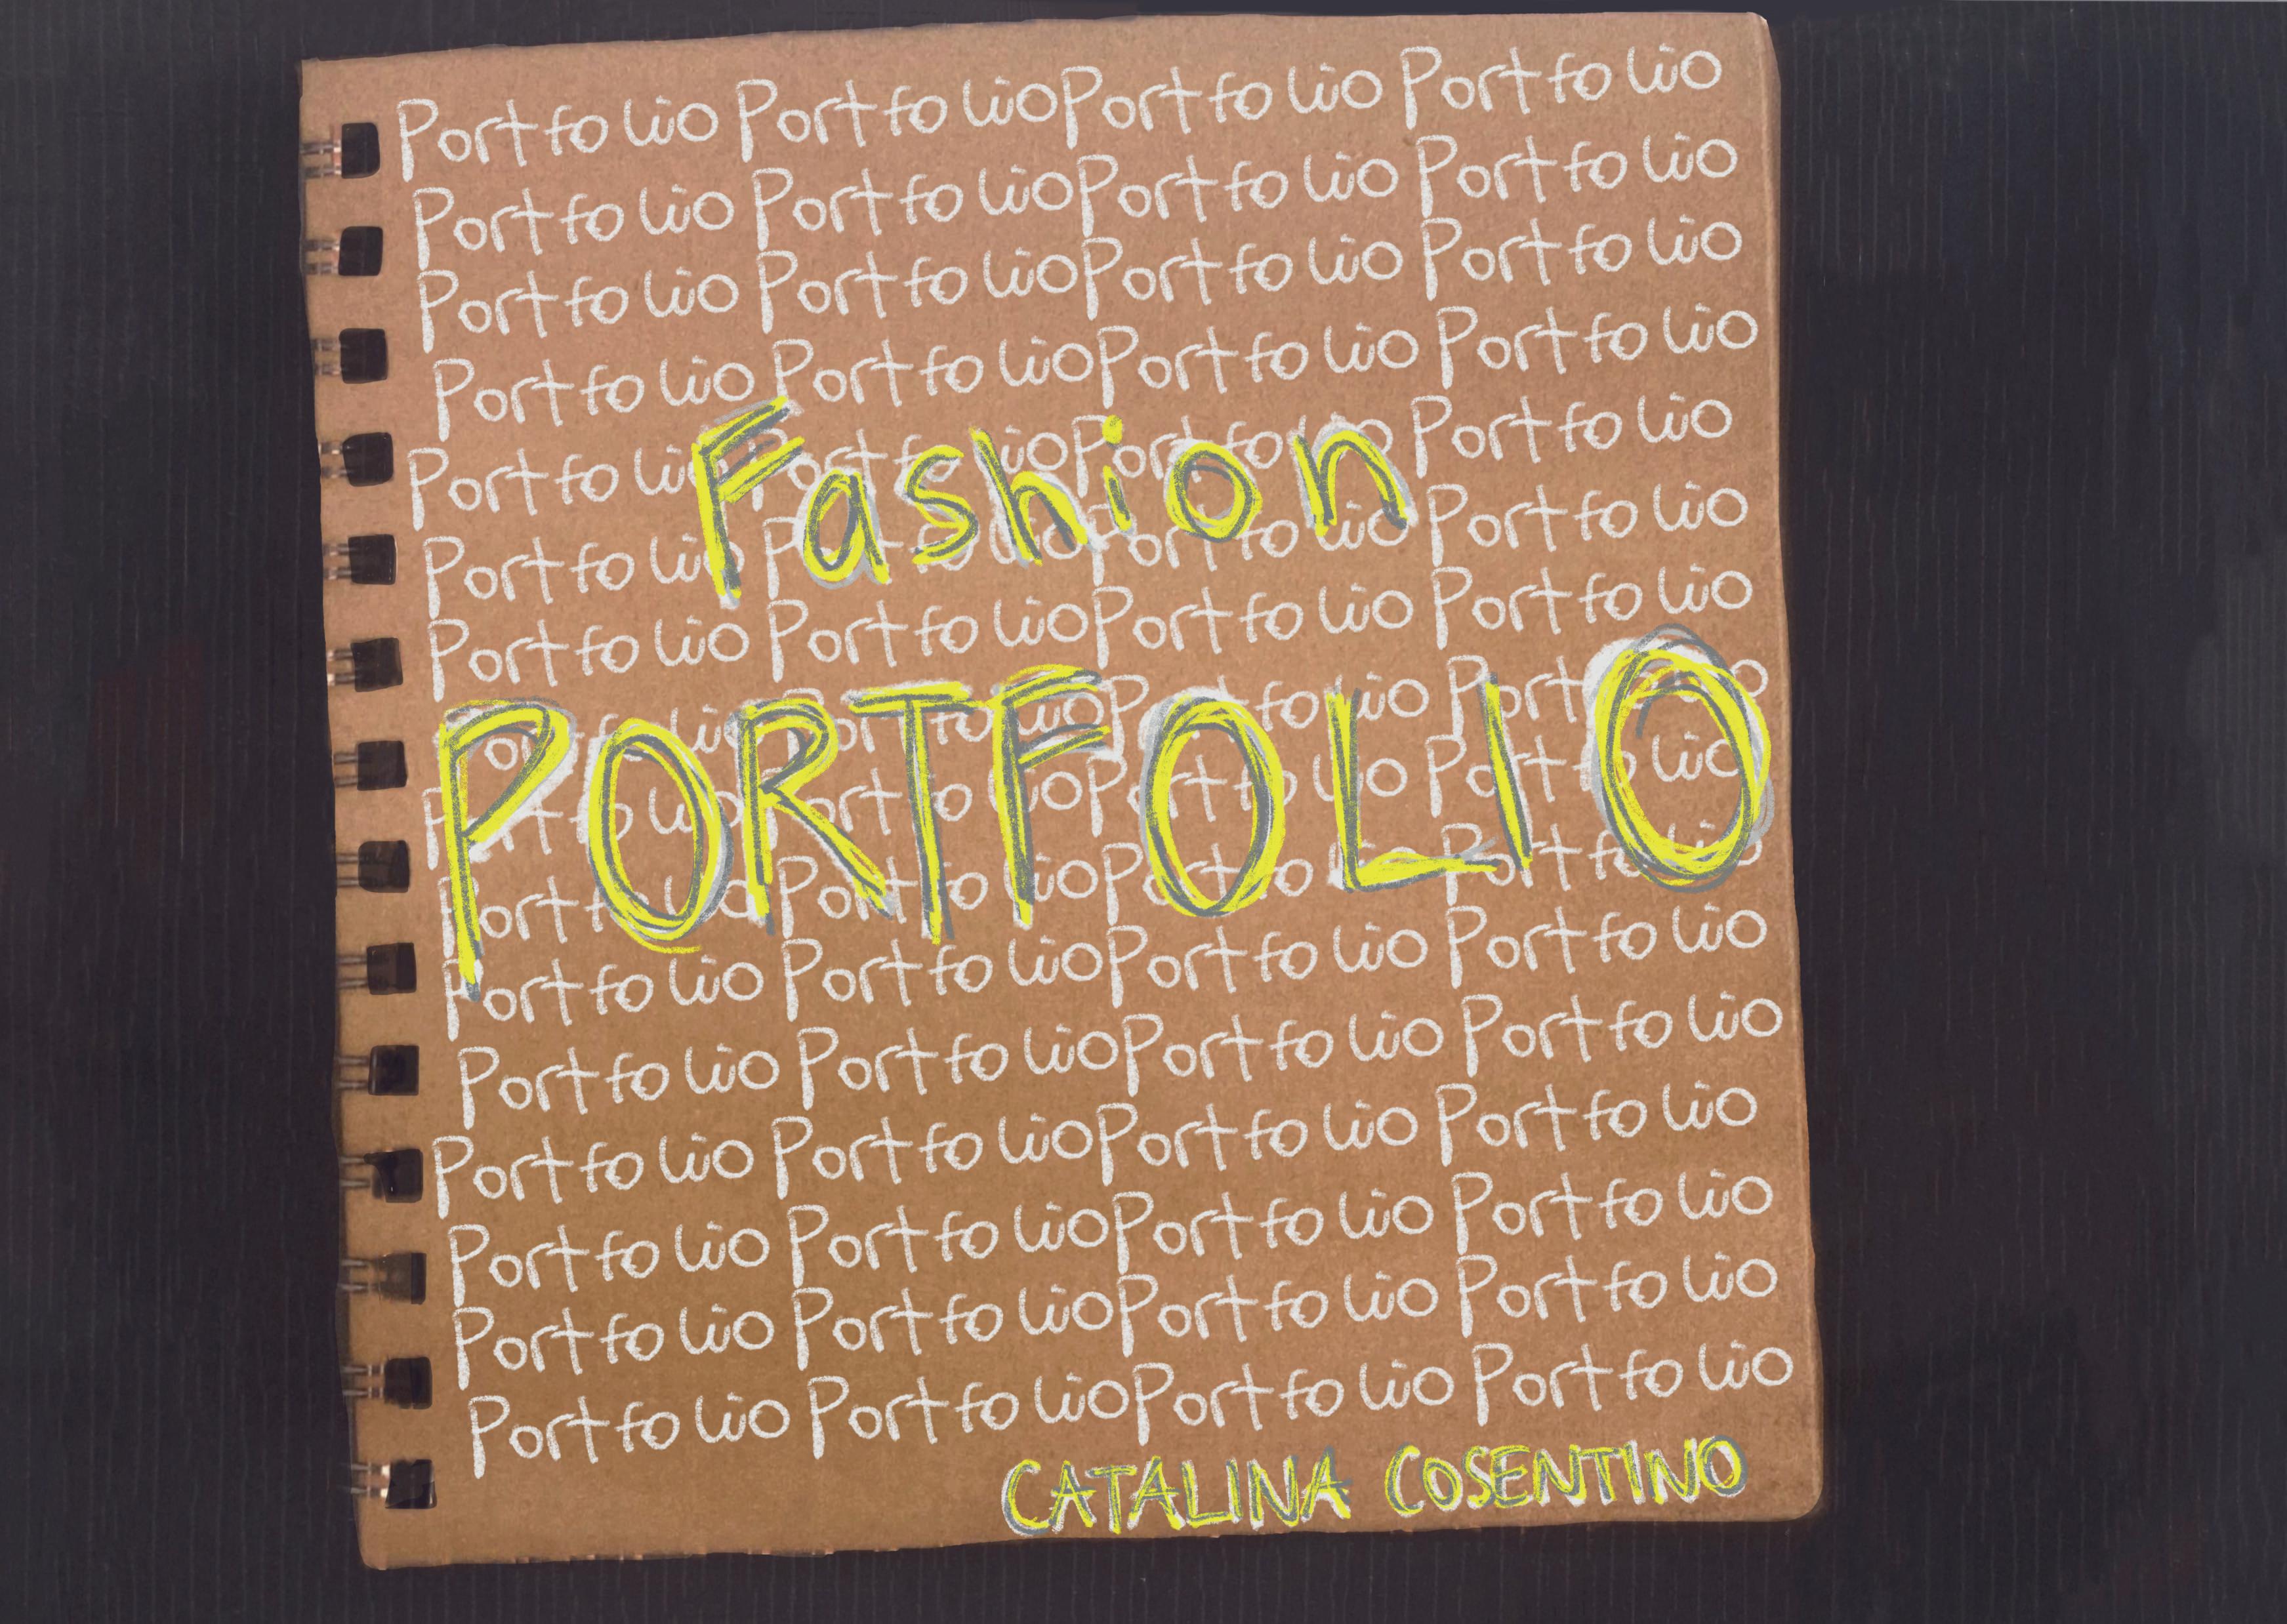 Portfolio Portfolio Portfolio Portfolio
Portfolio Portfolio Portfolio Portfolio
Portfolio Portfolio Portfolio Portfolio
Portfolio Portfolio Portfolio Portfolio
Portfolio Portfolio Portfolio Portfolio
Fashion
Portfolio Portfolio Portfolio Portfolio
Portfolio Portfolio Portfolio Portfolio
Portfolio Portfolio Portfolio Portfolio
PORTFOLIO
Portfolio Portfolio Portfolio Portfolio
Portfolio Portfolio Portfolio Portfolio
Portfolio Portfolio Portfolio Portfolio
Portfolio Portfolio Portfolio Portfolio
Portfolio Portfolio Portfolio Portfolio
Portfolio Portfolio Portfolio Portfolio
Portfolio Portfolio Portfolio Portfolio
Portfolio Portfolio Portfolio Portfolio
CATALINA COSENTINO